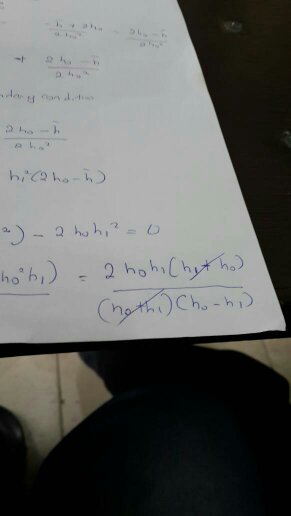 -h̄ + 2h₀ / 2h₀² = 2h₀ - h̄ / 2h₀²
⇒ 2h₀ - h̄ / 2h₀²
condition
2h₀ - h̄ / 2h₀²
h₁²(2h₀ - h̄)
) - 2h₀h₁² = 0
h₀²h₁) = 2h₀h₁(h₁ + h₀) / (h₀ + h₁)(h₀ - h₁)